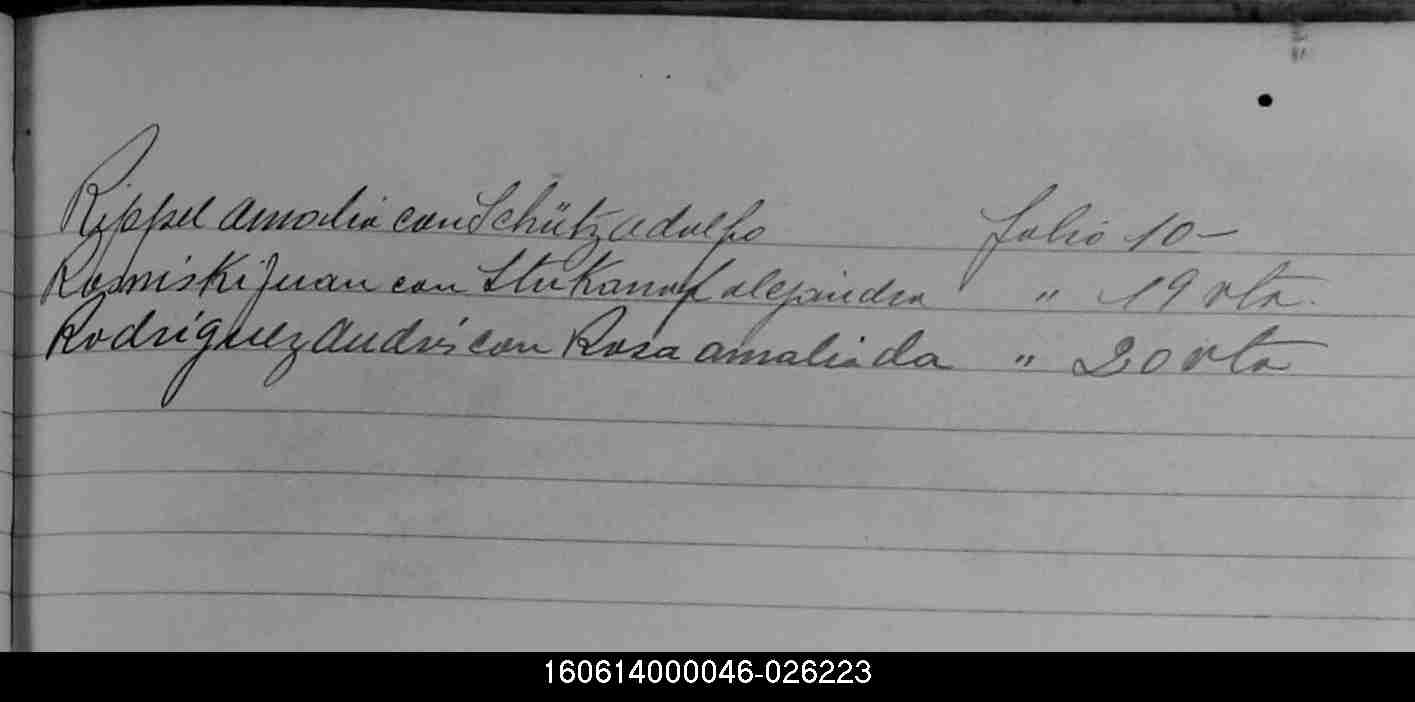 Rippel Amalia con Schütz Adolfo folio 10-
Rosniski Juan con Stukanof alejandra " 19 vta.
Rodriguez Andrés con Rosa amalia da " 20 vta
160614000046-026223